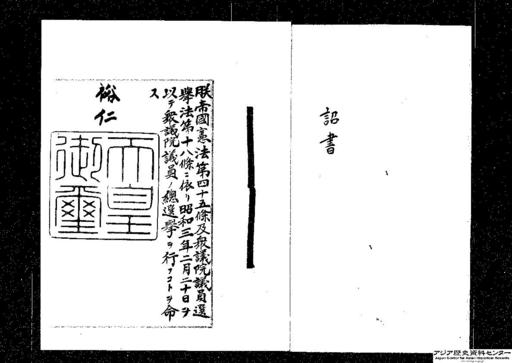 詔書
朕帝國憲法第四十五條及衆議院議員選
擧法第十八條ニ依リ昭和三年二月二十日ヲ
以テ衆議院議員ノ總選擧ヲ行フコトヲ命
ス
裕仁
天皇
御璽
アジア歴史資料センター
Japan Center for Asian Historical Records